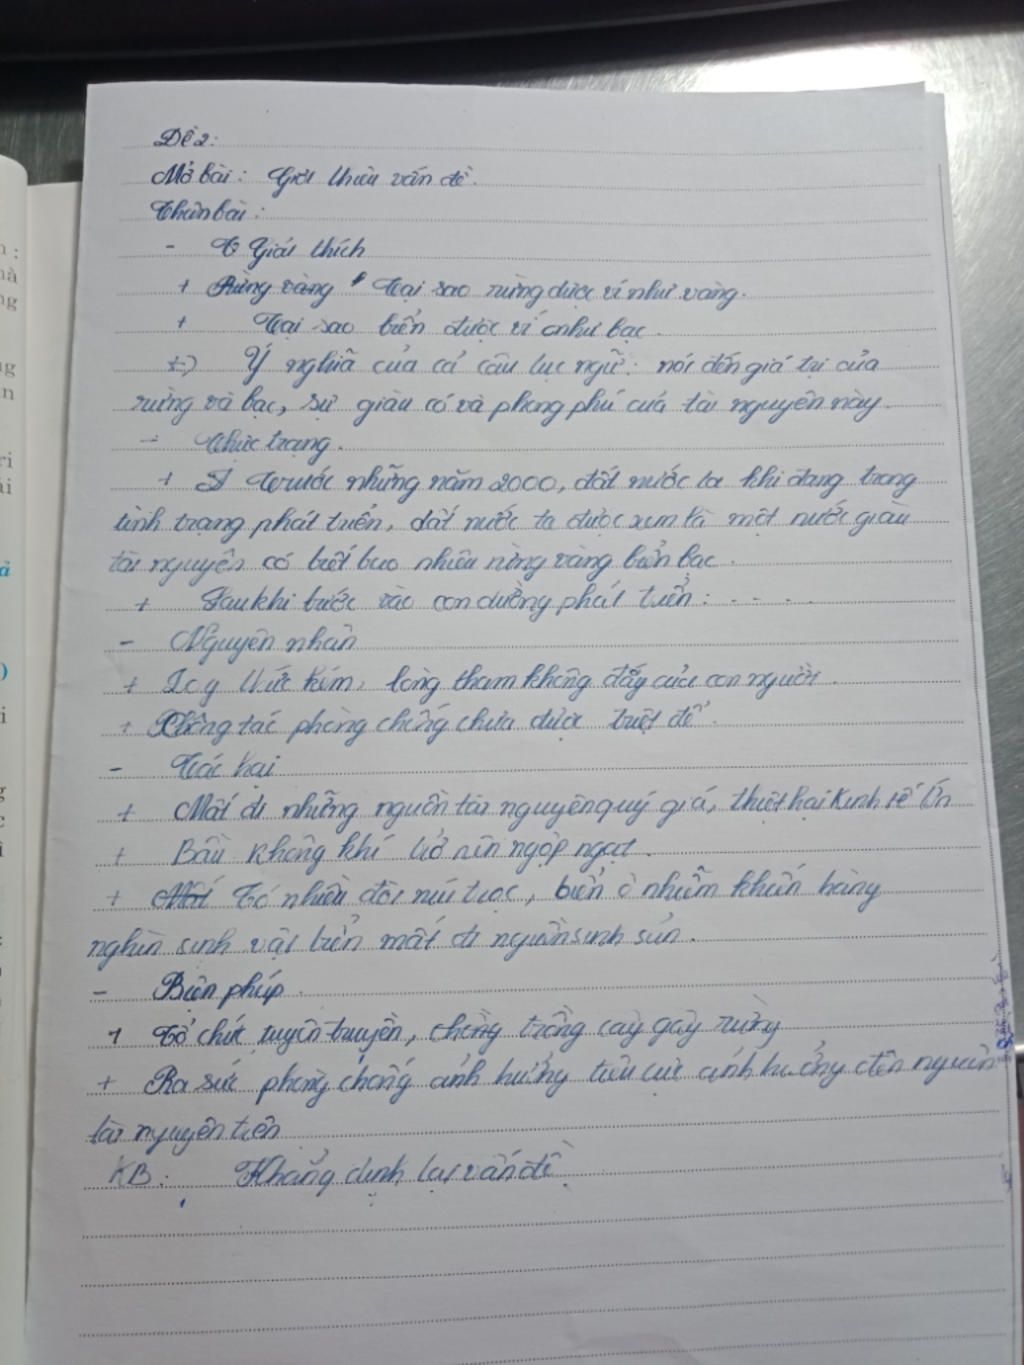 Đề 2:
Mở bài: Giới thiệu vấn đề.
Thân bài:
- Giải thích
+ Rừng vàng Tại sao rừng được ví như vàng.
+ Tại sao biển được ví như bạc.
=> Ý nghĩa của cả câu tục ngữ: nói đến giá trị của
rừng và bạc, sự giàu có và phong phú của tài nguyên này.
- Thực trạng.
+ Trước những năm 2000, đất nước ta khi đang trong
tình trạng phát triển, đất nước ta được xem là một nước giàu
tài nguyên có biết bao nhiêu rừng vàng biển bạc.
+ Sau khi bước vào con đường phát triển: . . . .
- Nguyên nhân
+ Ý thức kém, lòng tham không đáy của con người.
+ Công tác phòng chống chưa được triệt để.
- Tác hại
+ Mất đi những nguồn tài nguyên quý giá, thiệt hại kinh tế lớn
+ Bầu không khí trở nên ngộp ngạt.
+ Có nhiều đồi núi trọc, biển ô nhiễm khiến hàng
nghìn sinh vật biển mất đi nguồn sinh sản.
- Biện pháp.
+ Tổ chức tuyên truyền, trồng cây gây rừng
+ Ra sức phòng chống ảnh hưởng tiêu cực ảnh hưởng đến nguồn
tài nguyên trên
KB: Khẳng định lại vấn đề